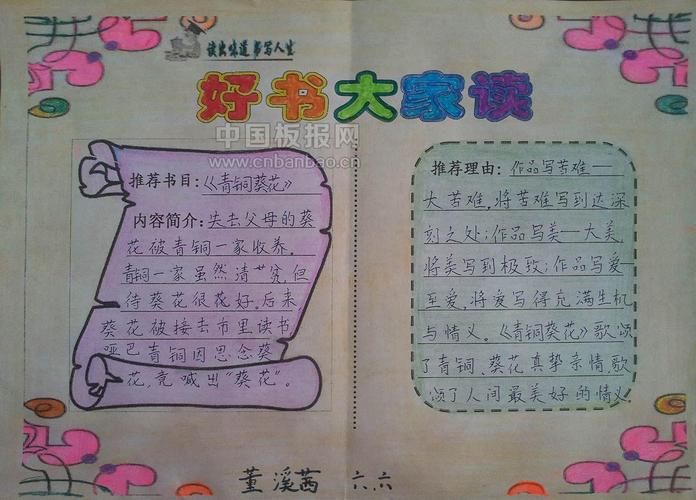 读出味道 书写人生
好书大家读
中国板报网
www.cnbanbao.cn
推荐书目:《青铜葵花》
内容简介:失去父母的葵
花被青铜一家收养。
青铜一家虽然清贫,但
待葵花很好。后来
葵花被接去市里读书
哑巴青铜因思念葵
花,竟喊出“葵花”。
推荐理由:作品写苦难——
大苦难,将苦难写到达深
刻之处;作品写美—大美,
将美写到极致;作品写爱
至爱,将爱写得充满生机
与情义。《青铜葵花》歌颂
了青铜、葵花真挚亲情,歌
颂了人间最美好的情义
董溪茜 六.六